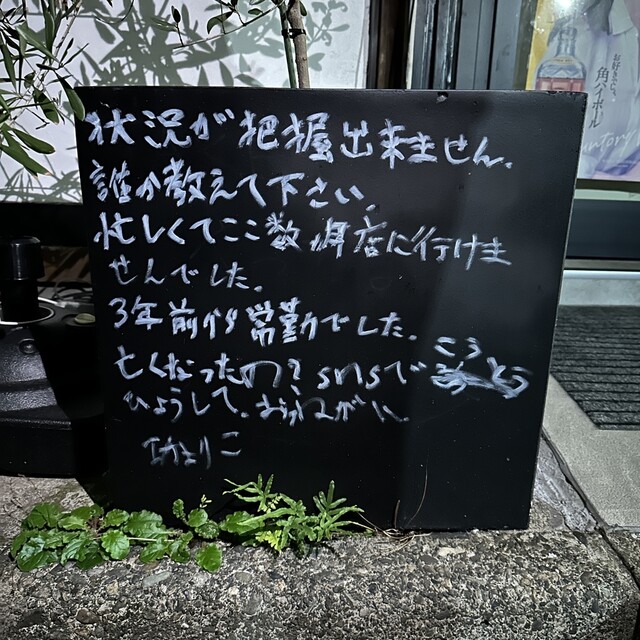 状況が把握出来ません。
誰か教えて下さい。
忙しくてここ数年店に行けま
せんでした。
3年前から常勤でした。
亡くなったの?snsで こう
ひょうして。おねがい。
角ハイボール